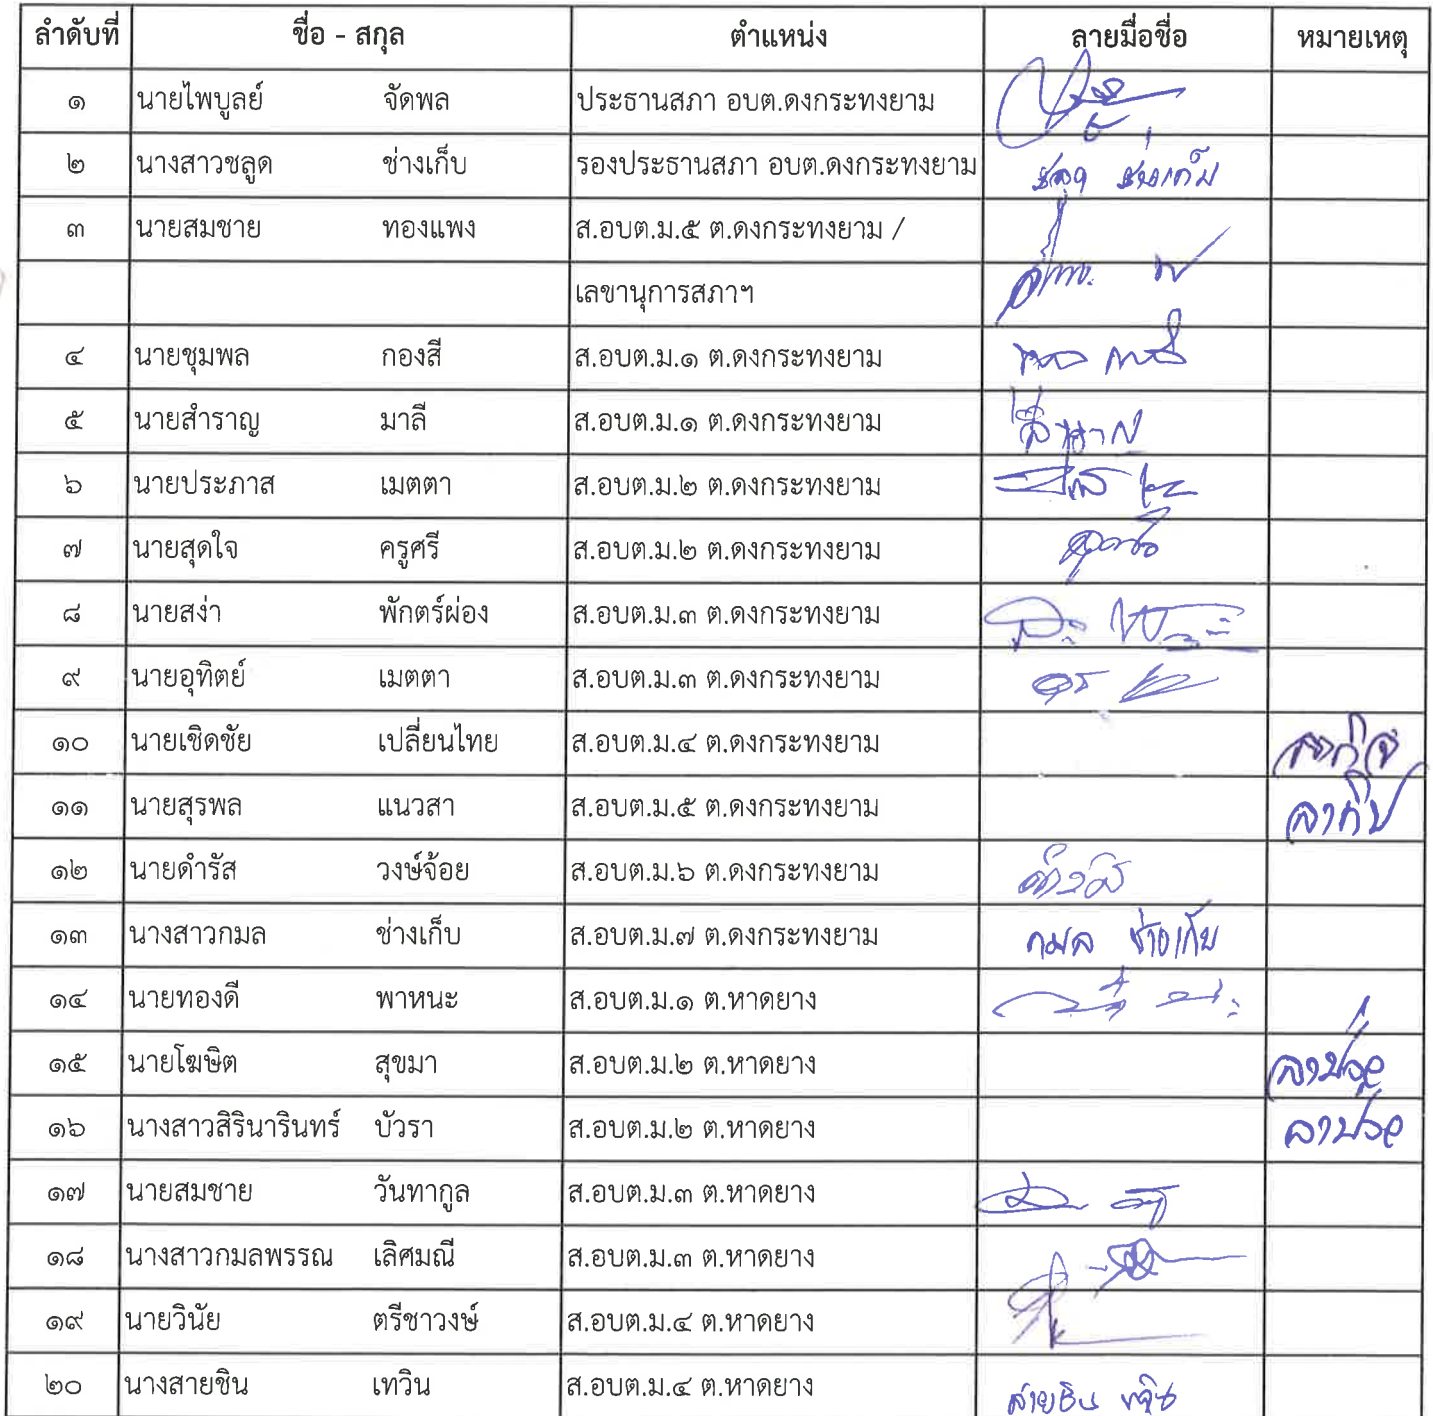 ลำดับที่ ชื่อ - สกุล ตำแหน่ง ลายมือชื่อ หมายเหตุ
๑ นายไพบูลย์ จัดพล ประธานสภา อบต.ดงกระทงยาม
๒ นางสาวชลูด ช่างเก็บ รองประธานสภา อบต.ดงกระทงยาม ชลูด ช่างเก็บ
๓ นายสมชาย ทองแพง ส.อบต.ม.๕ ต.ดงกระทงยาม /
เลขานุการสภาฯ
๔ นายชุมพล กองสี ส.อบต.ม.๑ ต.ดงกระทงยาม
๕ นายสำราญ มาลี ส.อบต.ม.๑ ต.ดงกระทงยาม สำราญ
๖ นายประภาส เมตตา ส.อบต.ม.๒ ต.ดงกระทงยาม
๗ นายสุดใจ ครูศรี ส.อบต.ม.๒ ต.ดงกระทงยาม
๘ นายสง่า พักตร์ผ่อง ส.อบต.ม.๓ ต.ดงกระทงยาม
๙ นายอุทิตย์ เมตตา ส.อบต.ม.๓ ต.ดงกระทงยาม
๑๐ นายเชิดชัย เปลี่ยนไทย ส.อบต.ม.๔ ต.ดงกระทงยาม ลากิจ
๑๑ นายสุรพล แนวสา ส.อบต.ม.๕ ต.ดงกระทงยาม ลากิจ
๑๒ นายดำรัส วงษ์จ้อย ส.อบต.ม.๖ ต.ดงกระทงยาม
๑๓ นางสาวกมล ช่างเก็บ ส.อบต.ม.๗ ต.ดงกระทงยาม กมล ช่างเก็บ
๑๔ นายทองดี พาหนะ ส.อบต.ม.๑ ต.หาดยาง
๑๕ นายโฆษิต สุขมา ส.อบต.ม.๒ ต.หาดยาง ลาป่วย
๑๖ นางสาวสิรินารินทร์ บัวรา ส.อบต.ม.๒ ต.หาดยาง ลาป่วย
๑๗ นายสมชาย วันทากูล ส.อบต.ม.๓ ต.หาดยาง
๑๘ นางสาวกมลพรรณ เลิศมณี ส.อบต.ม.๓ ต.หาดยาง
๑๙ นายวินัย ตรีชาวงษ์ ส.อบต.ม.๔ ต.หาดยาง
๒๐ นางสายชิน เทวิน ส.อบต.ม.๔ ต.หาดยาง สายชิน เทวิน